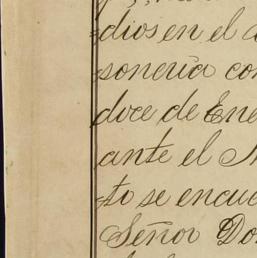 dios en el
soneria con
doce de Ene
ante el
to se encue
Señor Do